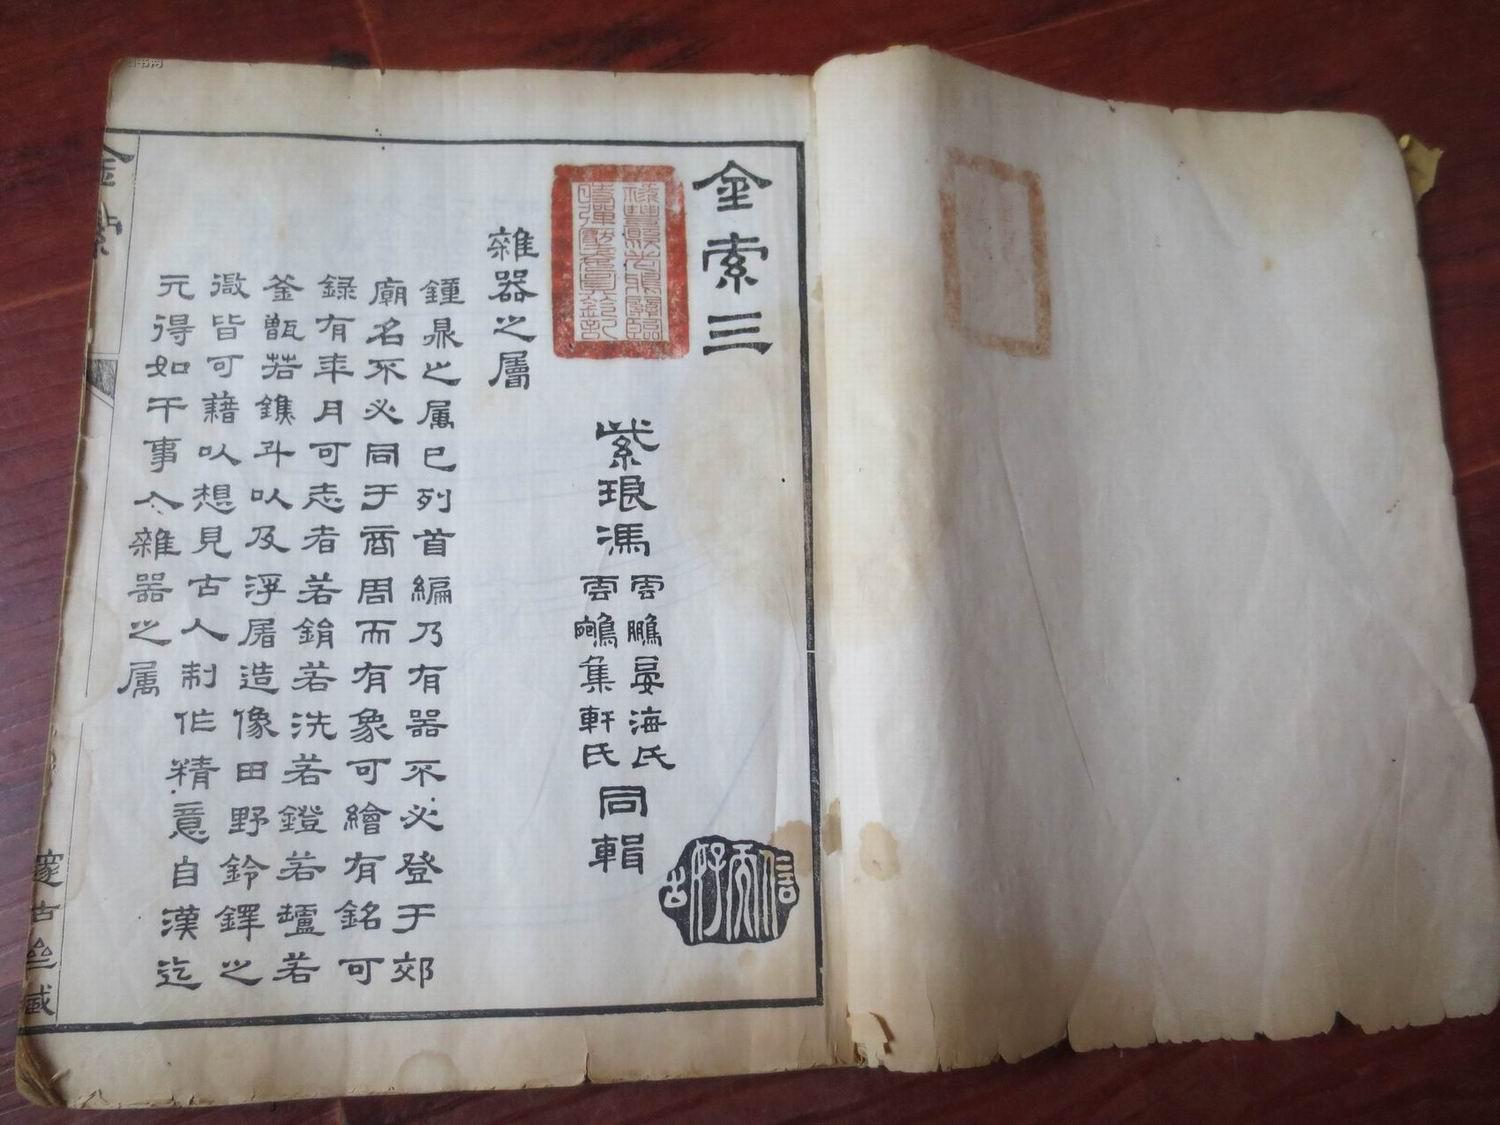 金索三
紫琅馮
雲鵬晏海氏
雲鵷集軒氏
同輯
信而好古
雜器之屬
鍾鼎之属已列首編乃有器不必登于郊
廟名不必同于商周而有象可繪有銘可
録有年月可志者若鋗若洗若鐙若鑪若
釜甑若鐎斗以及浮屠造像田野鈴鐸之
微皆可藉以想見古人制作精意自漢迄
元得如干事入雜器之属
金索
邃古𠫵藏